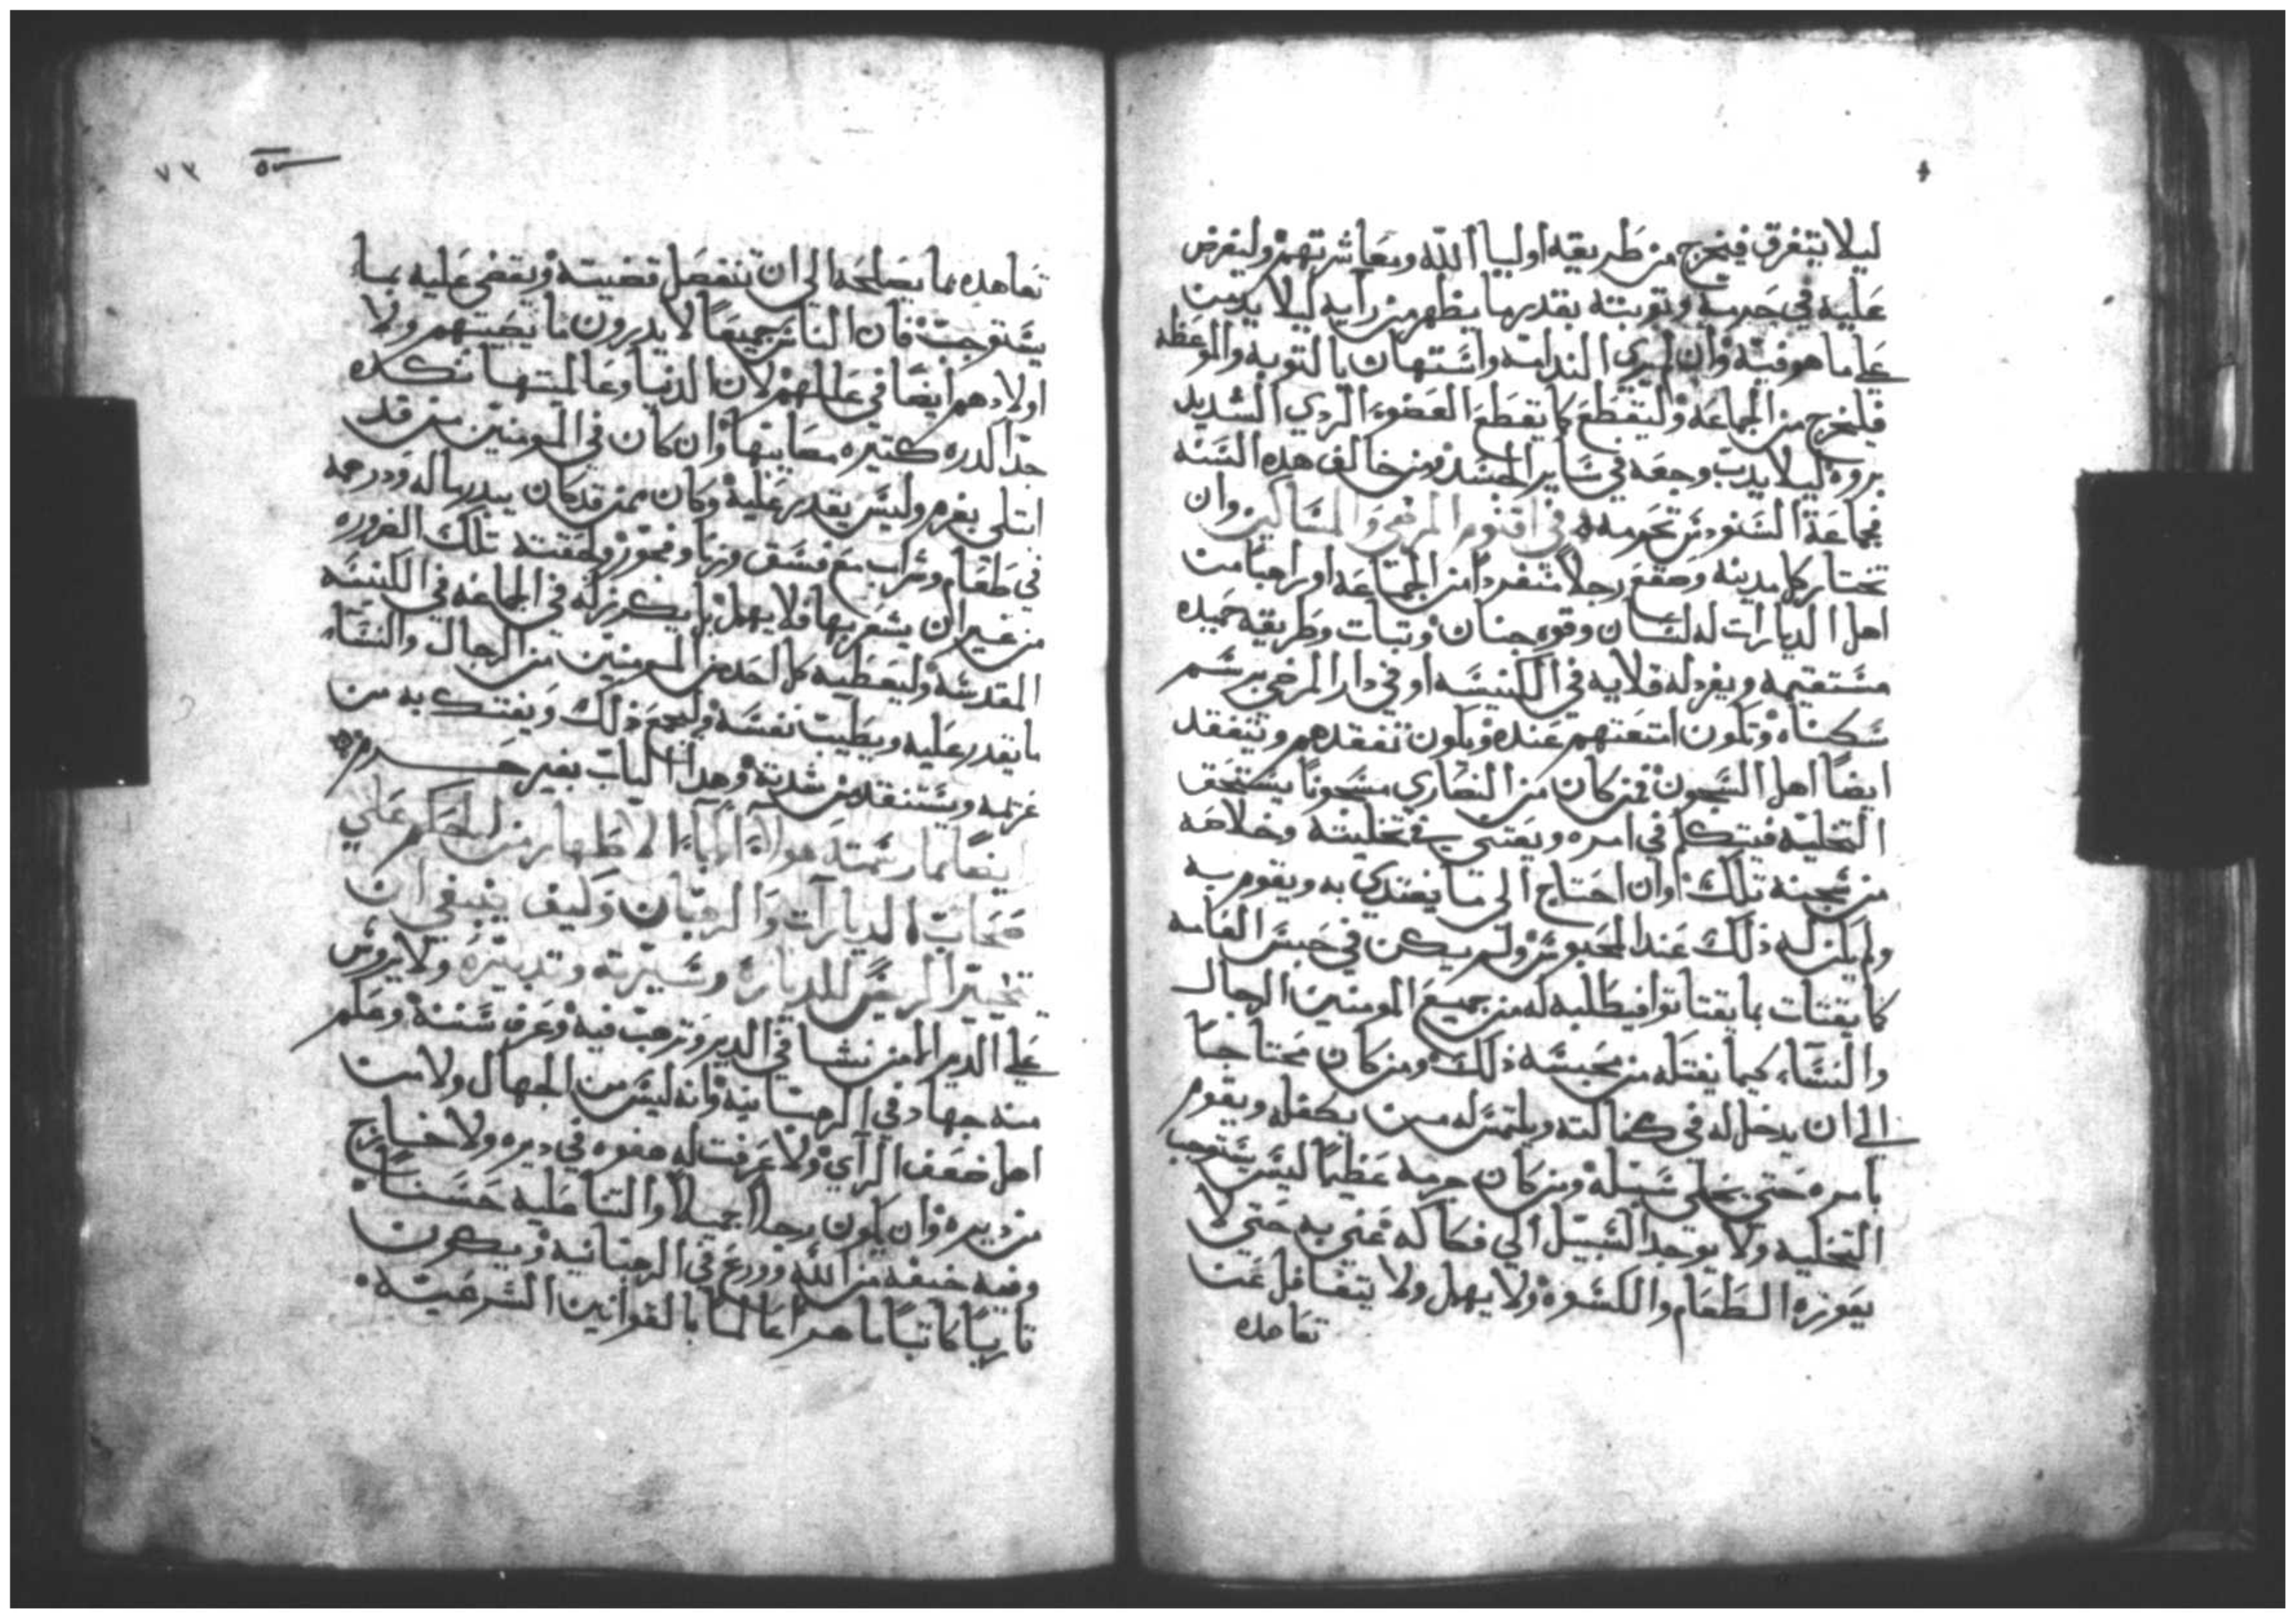 ليلا يتفرق فيخرج من طريقه اوليا الله ومعاشرتهم وليفرض
عليه في جرمه وتوبته بقدر ما يظهر من رايه ليلا يدمن
علي ما هو فيه وان لم يري الندامه واستهان بالتوبه والموعظه
فليخرج من الجماعه وليقطع كما يقطع العضو الردي الشديد
بروه ليلا يدب وجعه في ساير الجسد ومن خالف هذه السنه
فجماعة السنودس تحرمه في اقنوم المرضي والمساكين وان
تختار كل مدينه وصقع رجلا منفردا من الجماعه او راهبا من
اهل الديارات له لسان وقوه جنان وتبات وطريقه حميده
مستقيمه ويفرد له قلايه في الكنيسه او في دار المرضي برسم
سكناه وتكون امتعتهم عنده ويكون تفقدهم ويتفقد
ايضا اهل السجون فمن كان من النصاري مسجونا يستحق
التخليه فيتكلم في امره ويعتني في تخليته وخلاصه
من سجنه تلك وان احتاج الي ما يفتدي به ويقوم به
ولم يكن له ذلك عند المحبوس ولم يكن في حبس العامه
كما يقتات بما يقتاتوا فيطلبه له من جميع المومنين الرجال
والنساء كيما يفتكه من محبسه ذلك ومن كان محتاجا
الي ان يدخل له في كفالته ويلتمس له من يكفله ويقوم
بامره حتي يخلي سبيله ومن كان جرمه عظيما ليس يستوجب
التخليه ولا يوجد السبيل الي فكاكه عني به حتي لا
يعوزه الطعام والكسوه ولا يهمل ولا يتغافل عن
تعاهده
٧٣
تعاهده بما يصلحه الي ان تنفصل قضيته ويقضي عليه بما
يستوجب فان الناس جميعا لا يدرون ما يصيبهم ولا
اولادهم ايضا في عالمهم لان الدنيا وعالميتها نكده
جدا كدره كتيره مصايبها وان كان في المومنين من قد
ابتلي بغرم وليس يقدر عليه وكان ممن قد كان يبدر ماله ودرهمه
في طعام وشراب مع فسق وزنا وفجور ولحقته تلك الضروره
من غير ان يشعر بها فلا يهمل بل يكرز له في الجماعه في الكنيسه
المقدسه وليعطيه كل احد من المومنين من الرجال والنساء
ما يقدر عليه ويطيب نفسه وليجمع ذلك ويفتك به من
غرمه ويستنقد من شدته وهدا الباب بغير حرم
ايضا مما رسمته هولاء الاباء الاطهار من الحكم علي
اصحاب الديارات والرهبان وكيف ينبغي ان
تخير الريس للديارة وسيرته وتدبيره ولا يروس
علي الدير الا من نشا في الدير وترهب فيه وعرف سننه وعلم
منه جهاد في الرهبانيه وانه ليس من الجهال ولا من
اهل ضعف الراي ولا عرفت له هفوه في ديره ولا خارج
من ديره وان يكون رجلا جميلا والتنا عليه حسنا
وفيه خيفه من الله وورع في الرهبانيه ويكون
قاريا كاتبا ماهرا عالما بالقوانين الشرعيه